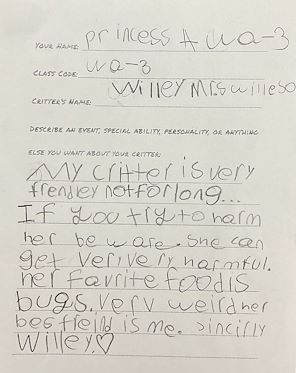 YOUR NAME: princess A wa-3
CLASS CODE: wa-3
CRITTER'S NAME: Willey Mrs willeso
DESCRIBE AN EVENT, SPECIAL ABILITY, PERSONALITY, OR ANYTHING
ELSE YOU WANT ABOUT YOUR CRITTER:
My critter is very
frendley not for long...
If you try to harm
her be ware. She can
get very very harmful.
her favrite food is
bugs. very weird her
bes freind is me. sincirly
Willey.♡